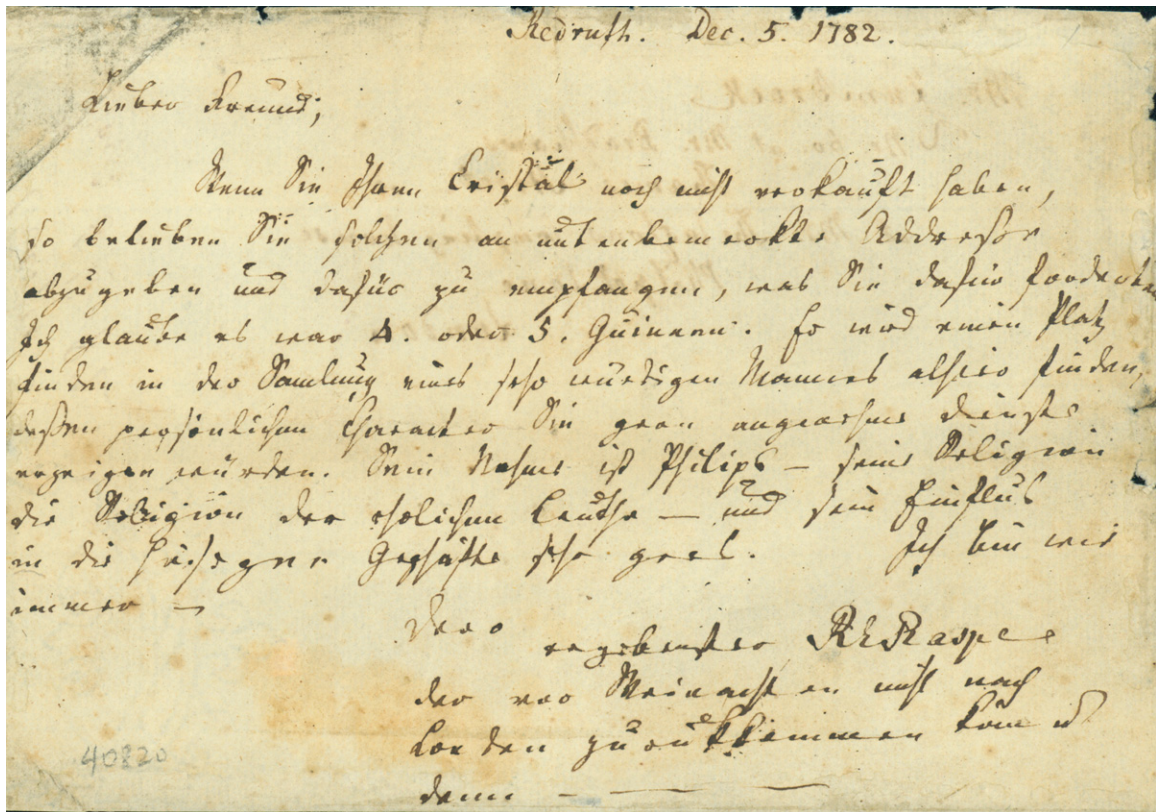 Redruth. Dec. 5. 1782.
Lieber Freund;
Wenn Sie Ihren Cristal noch nicht verkauft haben,
so belieben Sie solchen an untenbemerkte Addresse
abzugeben und dafür zu empfangen, was Sie dafür forderten
Ich glaube es war 4. oder 5. Guineen. Er wird einen Platz
finden in der Samlung eines sehr würdigen Mannes alhier finden,
deßen persönlichen Character Sie gern angenehme Dienste
erzeigen würden. Sein Nahme ist Philips – seine Religion
die Religion der ehrlichen Leuthe – und sein Einflus
in die hiesigen Geschäfte sehr gros. Ich bin wie
immer –
Dero
ergebenster RERaspe
der vor Weinachten nicht nach
London zurükkommen kan u
denn –
40820